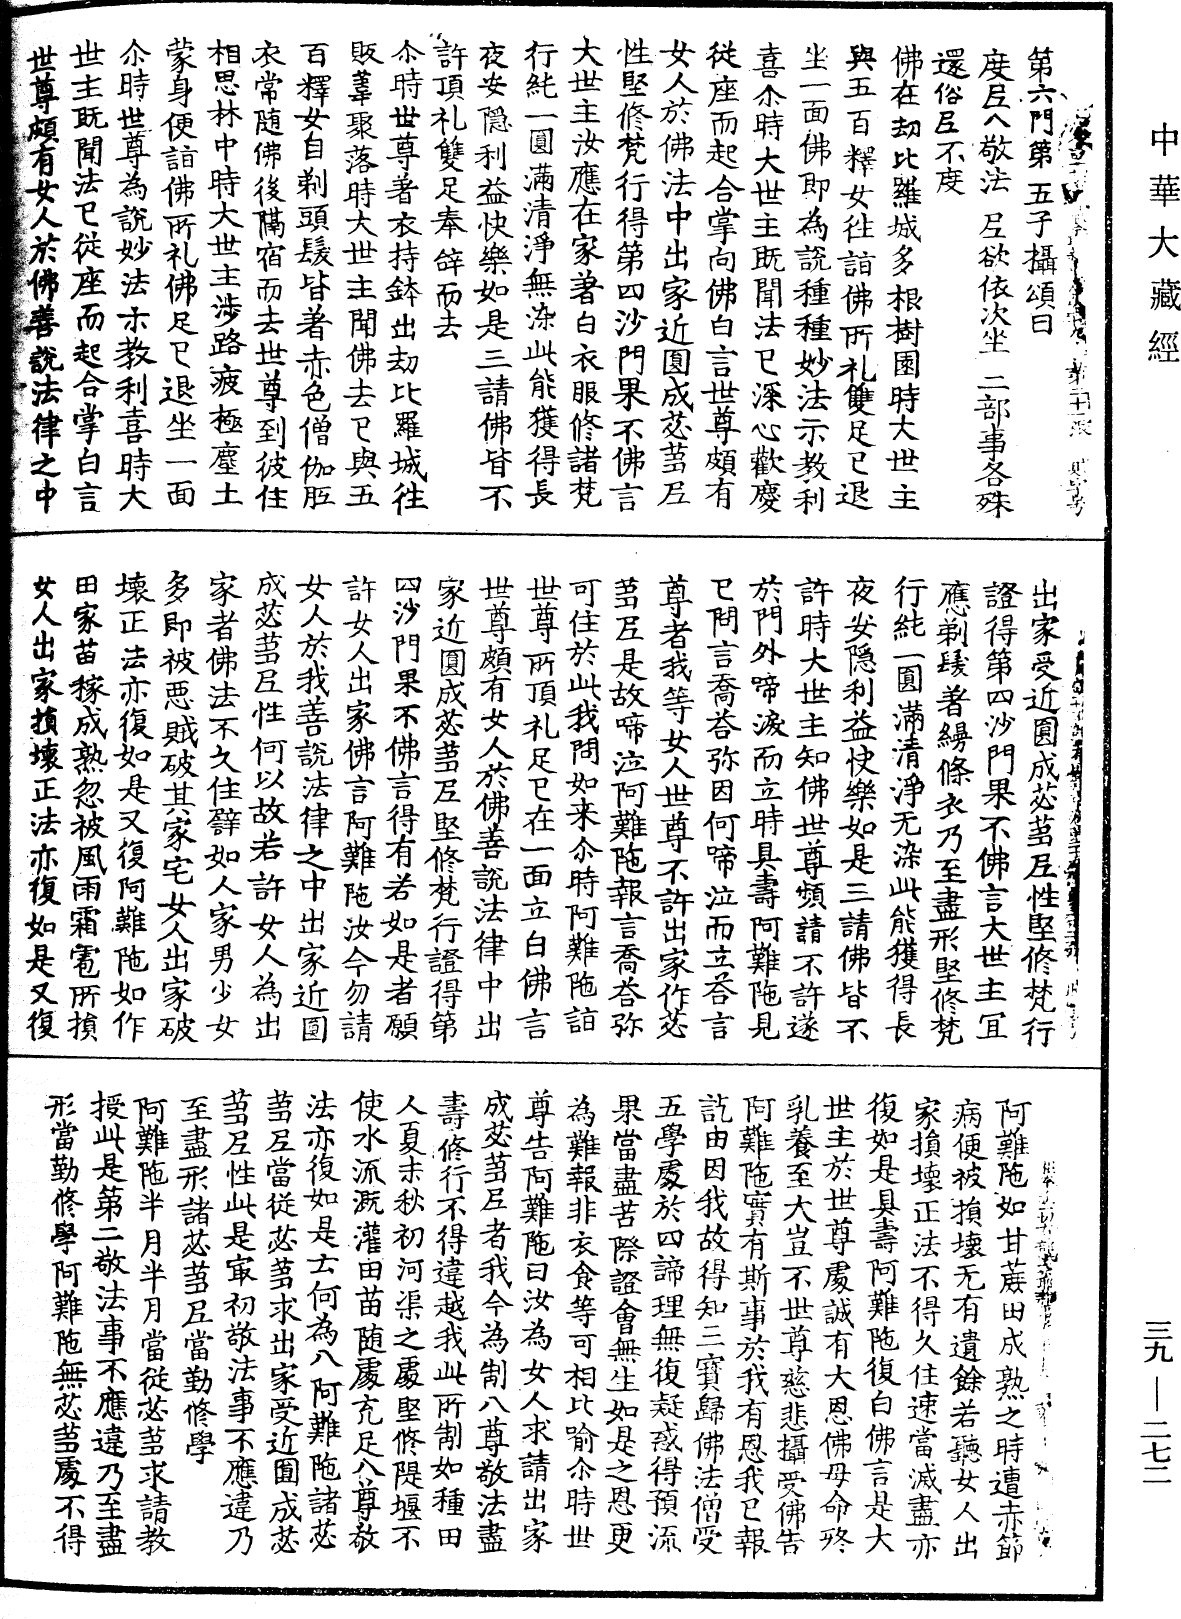 中華大藏經
第六門第五子攝頌曰
度尼八敬法 尼欲依次坐 二部事各殊
還俗尼不度
佛在劫比羅城多根樹園時大世主
與五百釋女往詣佛所礼雙足已退
坐一面佛即為說種種妙法示教利
喜尒時大世主既聞法已深心歡慶
従座而起合掌向佛白言世尊頗有
女人於佛法中出家近圓成苾芻尼
性堅修梵行得第四沙門果不佛言
大世主汝應在家著白衣服修諸梵
行純一圓滿清淨無染此能獲得長
夜安隱利益快樂如是三請佛皆不
許頂礼雙足奉辝而去
尒時世尊著衣持鉢出劫比羅城往
販葦聚落時大世主聞佛去已與五
百釋女自剃頭髮皆著赤色僧伽胝
衣常随佛後隔宿而去世尊到彼住
相思林中時大世主涉路疲極塵土
蒙身便詣佛所礼佛足已退坐一面
尒時世尊為說妙法示教利喜時大
世主既聞法已従座而起合掌白言
世尊頗有女人於佛善說法律之中
出家受近圓成苾芻尼性堅修梵行
證得第四沙門果不佛言大世主冝
應剃髮著縵條衣乃至盡形堅修梵
行純一圓滿清淨无染此能獲得長
夜安隱利益快樂如是三請佛皆不
許時大世主知佛世尊頻請不許遂
於門外啼淚而立時具壽阿難陁見
已問言喬荅弥因何啼泣而立荅言
尊者我等女人世尊不許出家作苾
芻尼是故啼泣阿難陁報言喬荅弥
可住於此我問如来尒時阿難陁詣
世尊所頂礼足已在一面立白佛言
世尊頗有女人於佛善說法律中出
家近圓成苾芻尼堅修梵行證得第
四沙門果不佛言得有若如是者願
許女人出家佛言阿難陁汝今勿請
女人於我善說法律之中出家近圓
成苾芻尼性何以故若許女人為出
家者佛法不久住譬如人家男少女
多即被惡賊破其家宅女人出家破
壞正法亦復如是又復阿難陁如作
田家苗稼成熟忽被風雨霜雹所損
女人出家損壞正法亦復如是又復
阿難陁如甘蔗田成熟之時遭赤節
病便被損壞无有遺餘若聽女人出
家損壞正法不得久住速當滅盡亦
復如是具壽阿難陁復白佛言是大
世主於世尊處誠有大恩佛母命終
乳養至大豈不世尊慈悲攝受佛告
阿難陁實有斯事於我有恩我已報
訖由因我故得知三寶歸佛法僧受
五學處於四諦理無復疑惑得預流
果當盡苦際證會無生如是之恩更
為難報非衣食等可相比喻尒時世
尊告阿難陁曰汝為女人求請出家
成苾芻尼者我今為制八尊敬法盡
壽修行不得違越我此所制如種田
人夏末秋初河渠之處堅修隄堰不
使水流溉灌田苗随處充足八尊敬
法亦復如是云何為八阿難陁諸苾
芻尼當從苾芻求出家受近圓成苾
芻尼性此是㝡初敬法事不應違乃
至盡形諸苾芻尼當勤修學
阿難陁半月半月當從苾芻求請教
授此是第二敬法事不應違乃至盡
形當勤修學阿難陁無苾芻處不得
三九—二七二